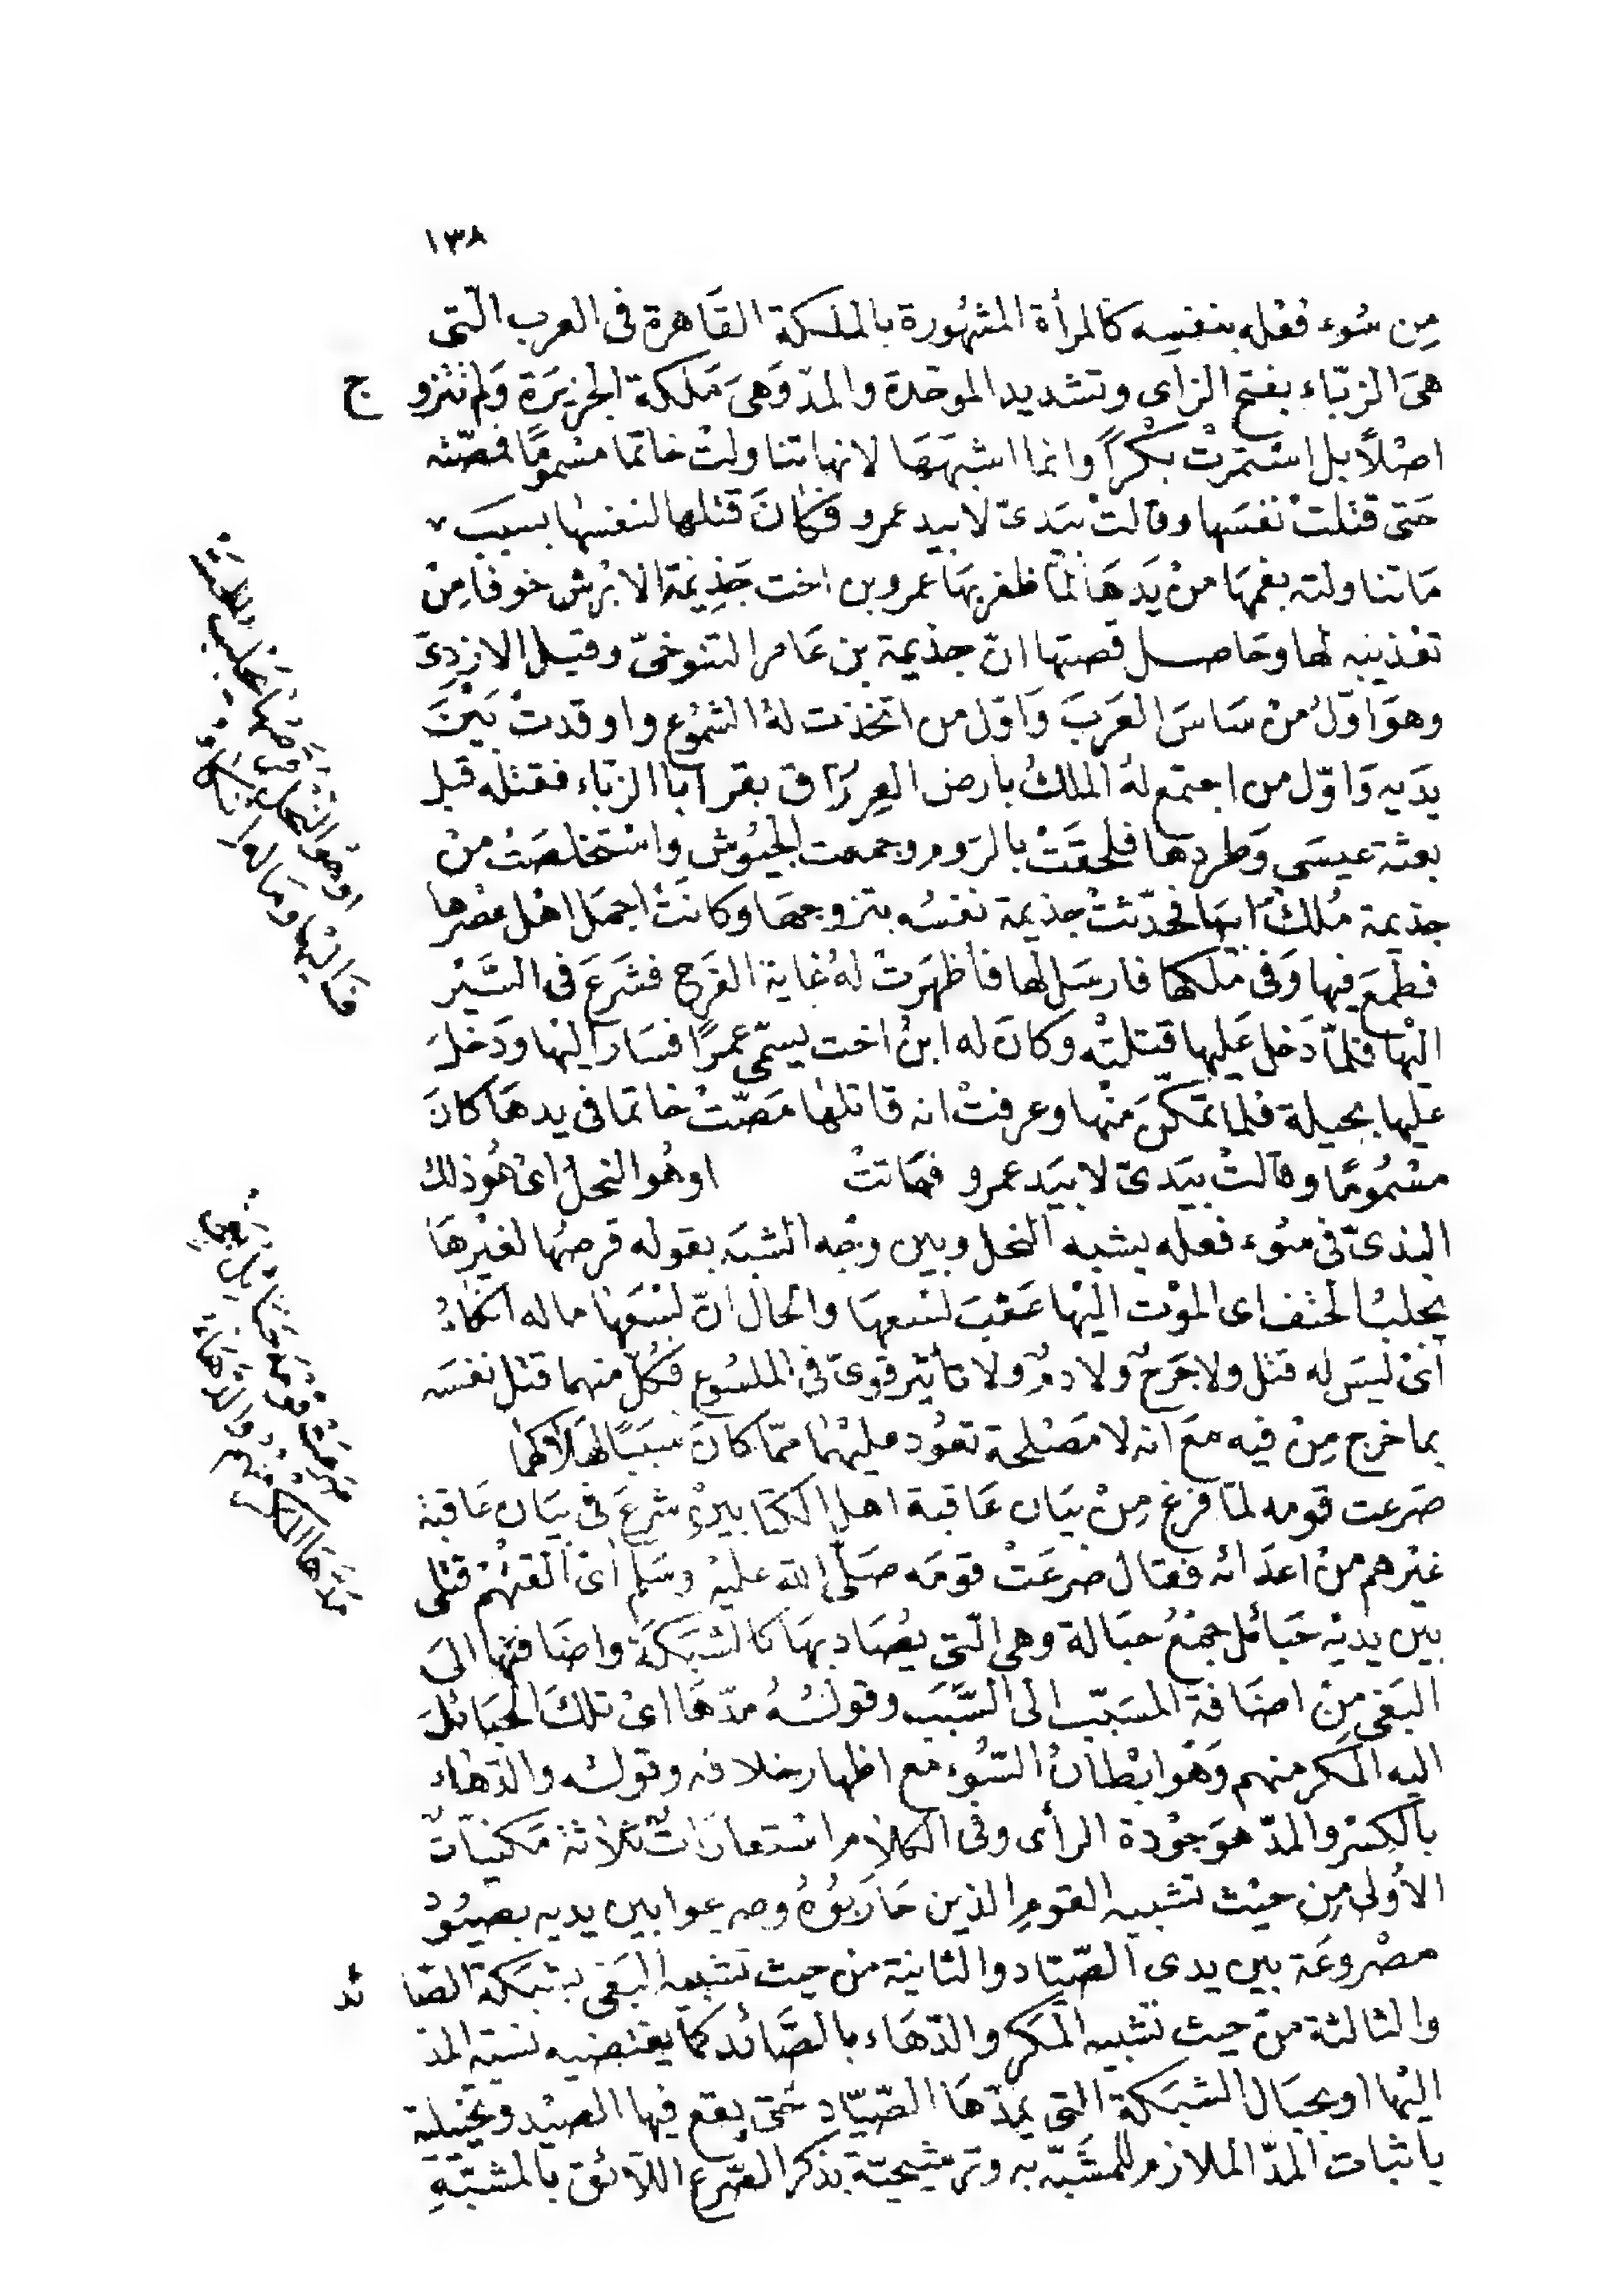 ١٣٨
مِن سُوء فعْله بنفسِه كالمرأة المشهُورة بالملكة القَاهرة فى العرب التى
هىَ الزبّاء بفتح الزاى وتشديد الموحّدة والمدّ وَهىَ مَلكة الجزيرَة وَلم تتزوج
اصْلاً بل استمرّتْ بكْراً وانما اشبهَهَا لانها تناولتْ خاتمًا مسْمومًا فمصّته
حَتى قتلتْ نفسَها وقالتْ بيَدىّ لا بيد عمرو فكانَ قتْلها لنفسها بسببَ
مَا تناولته بفمهَا منْ يَدهَا لمّا ظفر بهَا عمرو بن اخت جَذِيمة الابْرش خوفا مِنْ
تعْذيبه لها وحَاصل قصتها انّ جذيمة بن عَامر التنوخىّ وقيل الازدِىّ
وهوَ اوّلُ منْ سَاسَ العَرَبَ وَاوّل من اتخذت لهُ الشمُوع واوقدتْ بَيْنَ
يدَيه وَاوّل من اجتمع لهُ الملكُ بارض العِرَاق بقر ابا الزبّاء فقتله قبل
بعثة عيسَى وَطردها فلحقَتْ بالرّوم وجمعت الجيُوش واسْتخلصَتْ منْ
جذيمة مُلكَ ابيهَا فحدّثتْ جذيمة نفسُه بتزوجهَا وكانتْ اجمَل اهْل عصْرها
فطمعَ فيها وَفى ملكها فارسَل لها فأظهرَتْ لهُ غاية الفرَح فشرَعَ فى السَّيْر
اليْها فلمّا دَخل عَليها قتلتْه وَكانَ له ابنُ اخت يسمّى عمرًا فسَار اليْها ودَخلَ
عليها بحيلة فلما تمكّنَ منْها وعرفتْ انه قاتلهَا مَصّتْ خاتما فى يدهَا كانَ
مسْمُومًا وقالتْ بيَدىّ لا بيَد عمرو فمَاتتْ اوهُو النحلُ اىْ هُو ذلك
البذىّ فى سُوء فعله يشبه النحل وبيّن وجْه الشبَه بقوله قرصُها لغيْرهَا
يجلبُ الحتْف اى الموْت اليْها عَقبَ لسْعهَا والحَال انّ لسْعَها ما له انكاءُ
اىْ ليسَ له قتل ولا جَرحٌ ولا دمٌ ولا تأثيْر قوىّ فى الملسُوع فكُلّ منهما قتل نفسَه
بما خرج مِنْ فيه معَ انه لا مَصْلحة تعُود عليهْما ممّا كانَ سببًا لهَلاكهما
صَرعت قومه لمّا فرَغ مِنْ بيَان عَاقبة اهل الكتابيْن شرعَ فى بيَان عَاقبة
غيْرهم منْ اعدَائه فقال صرعَتْ قومَه صَلّى الله عليْه وسَلم اىْ القتهُمْ قتْلى
بيْن يديْه حَبَائل جمْعُ حبَالة وهى الّتى يُصَاد بهَا كالشبَكة واضَافتها الىَ
البَغى مِنْ اضَافة المسَبّب الى السَّبَب وقولُهُ مدّهَا اىْ تلكَ الحبَائلَ
اليه المكر منهم وَهُو ابْطانُ السّوُء مع اظهار خلافه وقوله والدّهَاء
بالكسْر والمدّ هوَ جوْدة الرأى وفى الكلام اسْتعارَاتٌ ثلاثة مكنياتٌ
الاُولى مِن حيْث تشبيه القومِ الذين حَارَبوُهُ وصرعوا بين يديه بصيُودْ
مصْروعَة بين يدى الصّيّاد والثانية منْ حيث تشبيه البَغى بشبَكة الصّائد
والثالثة منْ حيث تشبيه المَكر والدّهَاء بالصَّائد كما يقتضيه نسبة المدّ
اليْهما او بحبَال الشبَكة التى يمدّهَا الصّيّاد حَتى يقع فيها الصيْد وتخييلية
باثبات المدّ الملازم للمشَبّه به وترشيحيّة بذكر الصّرع اللائق بالمشبّهِ
اوهو النحل قرصها يجلب الحتْف
اليها وماله انكاء
صَرعتْ قومَه حَبَائل بَغى
مَدّهَا المكر منهم والدّهاء